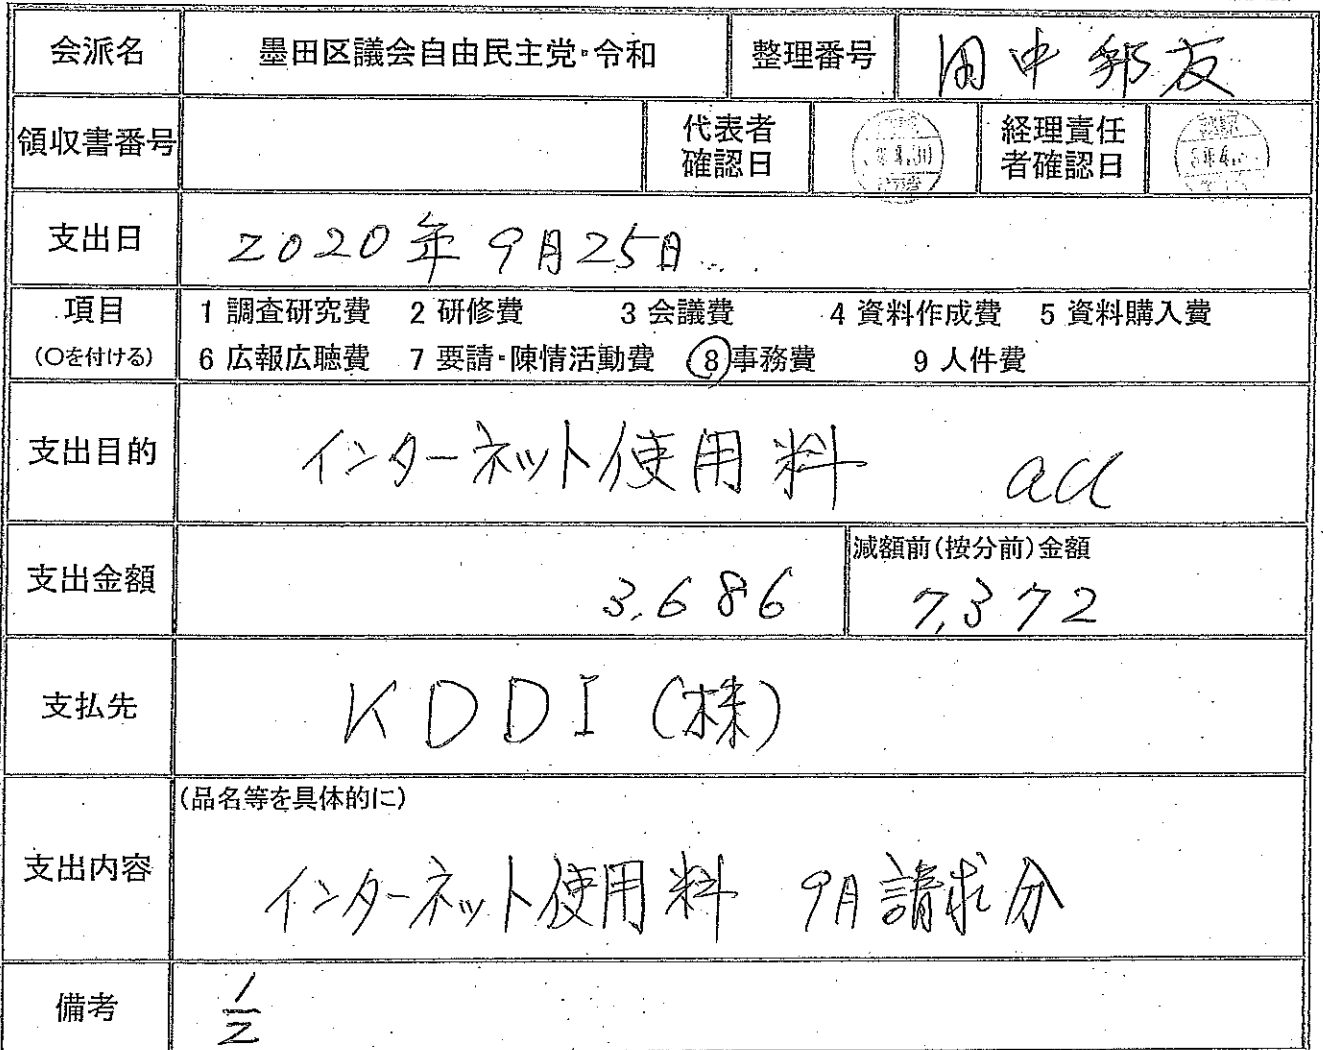 会派名 墨田区議会自由民主党・令和 整理番号 田中邦友
領収書番号 代表者確認日 経理責任者確認日
支出日 2020年9月25日
項目 1 調査研究費 2 研修費 3 会議費 4 資料作成費 5 資料購入費
(○を付ける) 6 広報広聴費 7 要請・陳情活動費 8 事務費 9 人件費
支出目的 インターネット使用料 au
減額前(按分前)金額
支出金額 3,686 7,372
支払先 KDDI (株)
(品名等を具体的に)
支出内容 インターネット使用料 9月請求分
備考 1/2